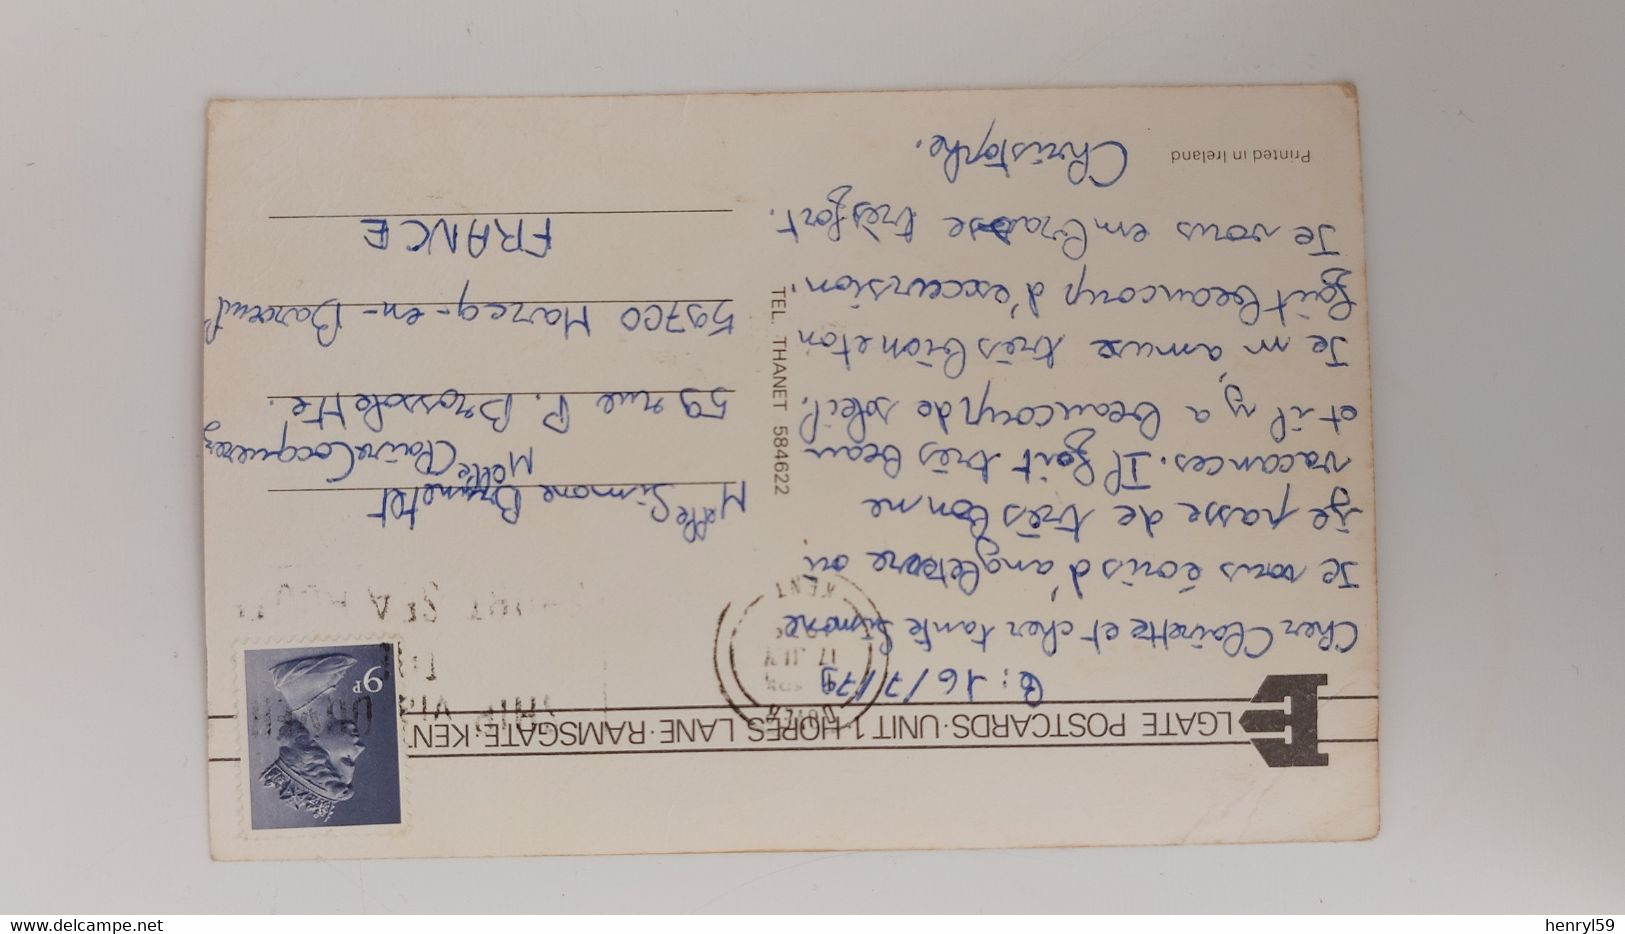 ELGATE POSTCARDS·UNIT 1·HOPES LANE·RAMSGATE·KENT
le: 16/7/79
Cher Clairette et cher tante Simone
Je vous écris d'angleterre où
je passe de très bonne
vacances. Il fait très beau
et il y a beaucoup de soleil.
Je m'amuse très bien et on
fait beaucoup d'excursion.
Je vous embrasse très fort.
Christophe.
Printed in Ireland
TEL. THANET 584622
DOVER
17 JLY
KENT
9P
Melle Simone Brunetet
Melle Claire Cocquerez
59 rue P. Brossolette.
59700 Marcq-en-Baroeul
FRANCE
henryl59
www.delcampe.net